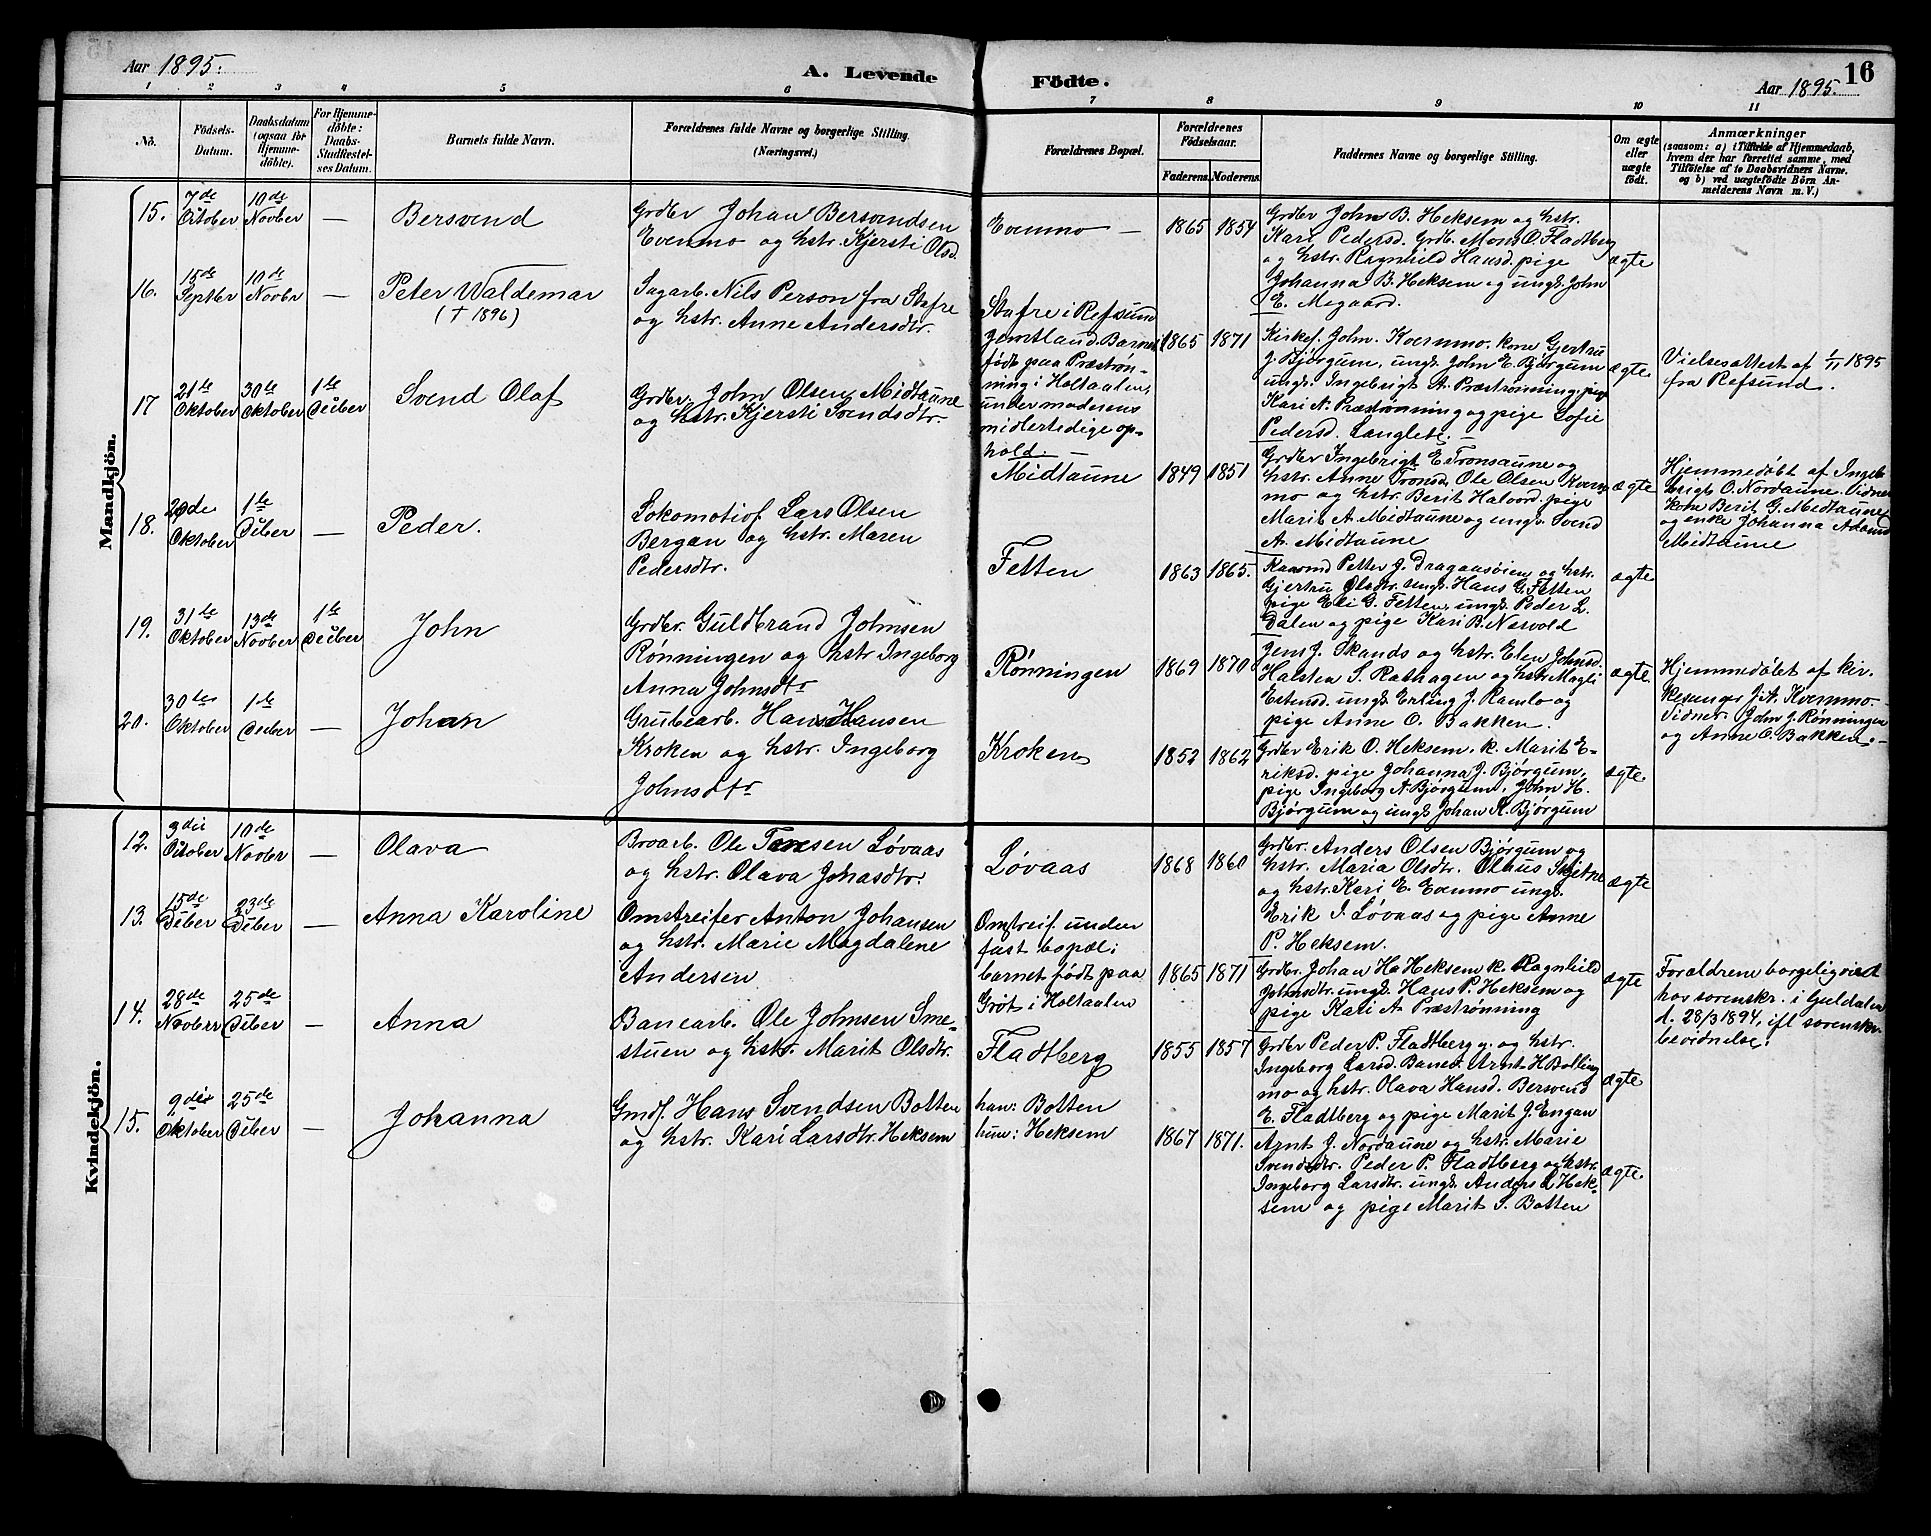 Aar 1895.
A. Levende
Födte.
Aar 1895.
16
1 2 3 4 5 6 7 8 9 10 11
No.
Födsels-
Datum.
Daabsdatum
(ogsaa for
Hjemme-
döbte).
For Hjemme-
döbte:
Daabs-
Stadfæstel-
ses Datum.
Barnets fulde Navn.
Forældrenes fulde Navne og borgerlige Stilling.
(Næringsvei.)
Forældrenes Bopæl.
Forældrenes
Födselsaar.
Faderens. Moderens.
Faddernes Navne og borgerlige Stilling.
Om ægte
eller
uægte
födt.
Anmærkninger
(saasom: a) i Tilfælde af Hjemmedaab,
hvem der har forrettet samme, med
Tilföielse af to Daabsvidners Navne,
og b) ved uægtefödte Börn An-
melderens Navn m. V.)
Mandkjön.
15.
7de
October
10de
Novber
—
Bersvend
Grdbr Johan Bersvendsen
Evenmo og hstr. Kjersti Olsd.
Evenmo —
1865 1854
Grdbr John B. Heksem og hstr.
Kari Pedersd. Grdb. Mons O. Fladtberg
og hstr. Ragnhild Hansd. pige
Johanna B. Heksem og ungk. John
E. Mogaard.
ægte
16.
15de
Septbr
10de
Novbr
—
Peter Waldemar
(† 1896)
Sagarb. Nils Person fra Stafre
og hstr. Anne Andersdtr.
Stafre i Refsund
Jemtland. Barnet
født paa Præstrøn-
ning i Holtaalen,
under moderens
midlertidige op-
hold. —
1865 1871
Kirkef. John. Kvernmo. kone Gjertru
J. Bjørgum, ungk. John E. Bjørgum
ungk. Ingebrigt A. Præstrønning, pige
Kari N. Præstrønning og pige Sofie
Pedersd. Langlete. —
ægte
Vielsesattest af 1/11 1895
fra Refsund.
17
21de
Oktober
30te
Oktober
1ste
Deuber
Svend Olaf
Grdbr. John Olsen Midtaune
og hstr. Kjersti Svendsdtr.
Midtaune
1849 1851
Grdbr Ingebrigt E. Tronsaune og
hstr. Anne Tronsd. Ole Olsen Kvern-
mo og hstr. Berit Halvord. pige
Marit A. Midtaune og ungk. Svend
A. Midtaune
ægte
Hjemmedøbt af Inge-
brigt O. Nordaune. Vidner
Kone Berit G. Midtaune
og enke Johanna
Midtaune
18.
Oktober
1ste
Deuber
—
Peder.
Lokomotivf. Lars Olsen
Bergan og hstr. Maren
Pedersdtr.
Fetten
1863 1865.
Petter J. Dragaasøien og hstr.
Gjertru Olsdtr. ungk. Hans G. Fetten
pige Eli G. Fetten, ungk. Peder L.
Dalen og pige Kari B. Nesvold
ægte
19.
31te
Oktober
13de
Novber
1ste
Deuber
John
Grdbr. Guldbrand Johnsen
Rønningen og hstr Ingeborg
Anna Johnsdtr
Rønningen
1869 1870
Jens J. Skands og hstr. Elen Johnsd.
Halsten S. Rathagen og hstr. Magli
Estensd. ungk. Erling J. Ramlo og
pige Anne O. Bakken.
ægte
Hjemmedøbt af kir-
kesanger J. A. Kvernmo.
Vidner. John J. Rønningen
og Anne O. Bakken. —
20.
30te
Oktober
1ste
Deuber
—
Johan
Grubearb. Hans Hansen
Kroken og hstr. Ingeborg
Johnsdtr
Kroken
1852 1862
Grdbr Erik O. Heksem. k. Marit E-
riksd. pige Johanna J. Bjørgum,
pige Ingeborg A. Bjørgum, John H.
Bjørgum og ungk Johan A. Bjørgum
ægte
Kvindekjön.
12.
3die
October
10de
Novbr
—
Olava
Broarb. Ole Løvaas
og hstr. Olava Johasdtr.
Løvaas
1868 1860
Grdbr. Anders Olsen Bjørgum og
hstr. Maria Olsdtr. Olaus Skjetne
og hstr. Kari E. Evenmo ungk.
Erik J. Løvaas og pige Anne
P. Heksem.
ægte
13.
15de
Deber
23de
Deber
—
Anna Karoline
Omstreifer Anton Johansen
og hstr. Marie Magdalene
Andersen
Omstreif. unden
fast bopæl;
barnet født paa
Grøt i Holtaalen
1865 1871
Grdbr. Johan Heksem k. Ragnhild
Johnsdtr. ungk. Hans P. Heksem og
pige Kari A. Præstrønning
ægte
Forældrene borgelig viet
hos sorenskr. i Guldalen
d. 28/3 1894, ifl sorenskr.
bevidnelse.
14.
28de
Novber
25de
Deuber
—
Anna
Banearb. Ole Johnsen Sme-
stuen og hstr. Marit Olsdtr.
Fladtberg
1855 1857
Grdbr Peder P. Fladtberg y. og hstr.
Ingeborg Larsd. Banev. Arnt H. Bolling-
mo og hstr. Olava Hansd. Bersvend
E. Fladtberg og pige Marit J. Engan
ægte
15.
9die
Oktober
25de
Deuber
—
Johanna
Gmdf. Hans Svendsen Botten
og hstr. Kari Larsdtr. Heksem
han: Botten
hun: Heksem
1867 1871.
Arnt J. Nordaune og hstr. Marie
Svendsdtr. Peder P. Fladtberg og hstr.
Ingeborg Larsdtr. ungk. Anders L Hek-
sem og pige Marit S. Botten
ægte